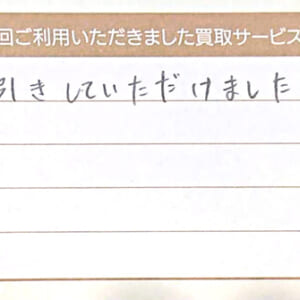 回ご利用いただきました買取サービス
引きしていただけました